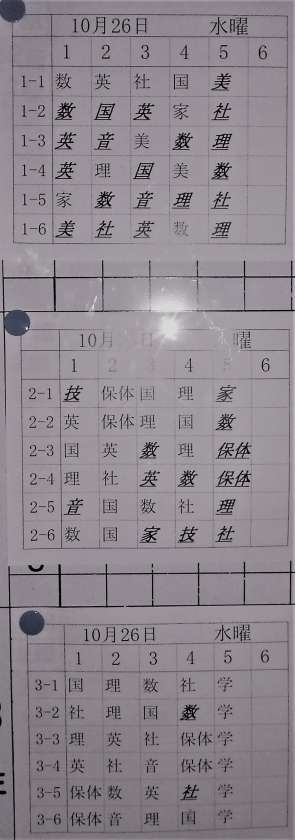 10月26日 水曜
1 2 3 4 5 6
1-1 数 英 社 国 美
1-2 数 国 英 家 社
1-3 英 音 美 数 理
1-4 英 理 国 美 数
1-5 家 数 音 理 社
1-6 美 社 英 数 理
10月 日 曜
1 2 3 4 5 6
2-1 技 保体 国 理 家
2-2 英 保体 理 国 数
2-3 国 英 数 理 保体
2-4 理 社 英 数 保体
2-5 音 国 数 社 理
2-6 数 国 家 技 社
10月26日 水曜
1 2 3 4 5 6
3-1 国 理 数 社 学
3-2 社 理 国 数 学
3-3 理 英 社 保体 学
3-4 英 社 音 保体 学
3-5 保体 数 英 社 学
3-6 保体 音 理 国 学